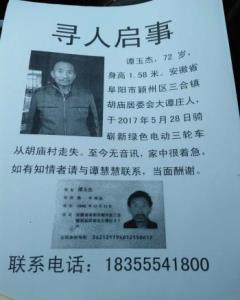 寻人启事
谭玉杰，72 岁，
身高 1.58 米。安徽省
阜阳市颍州区三合镇
胡庙居委会大谭庄人，
于 2017 年 5 月 28 日骑
崭新绿色电动三轮车
从胡庙村走失。至今无音讯，家中很着急，
如有知情者请与谭慧慧联系，当面酬谢。
谭玉杰
联系电话：18355541800